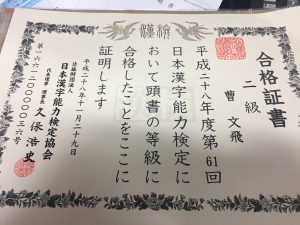 漢検
合格証書
二級
曹 文飛
平成二十八年度第61回
日本漢字能力検定に
おいて頭書の等級に
合格したことをここに
証明します
平成二十八年十一月二十九日
公益財団法人
日本漢字能力検定協会
代表理事 理事長 久保浩史